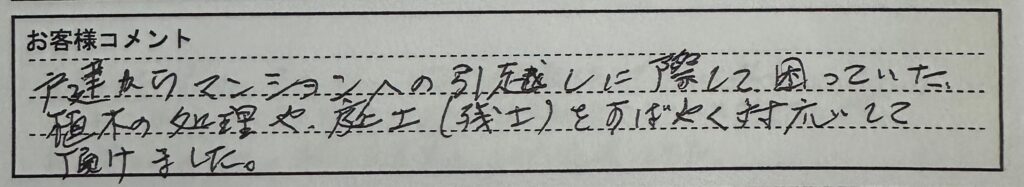 お客様コメント
戸建からマンションへの引越しに際して困っていた、
植木の処理や、庭土(残土)をすばやく対応して
頂けました。